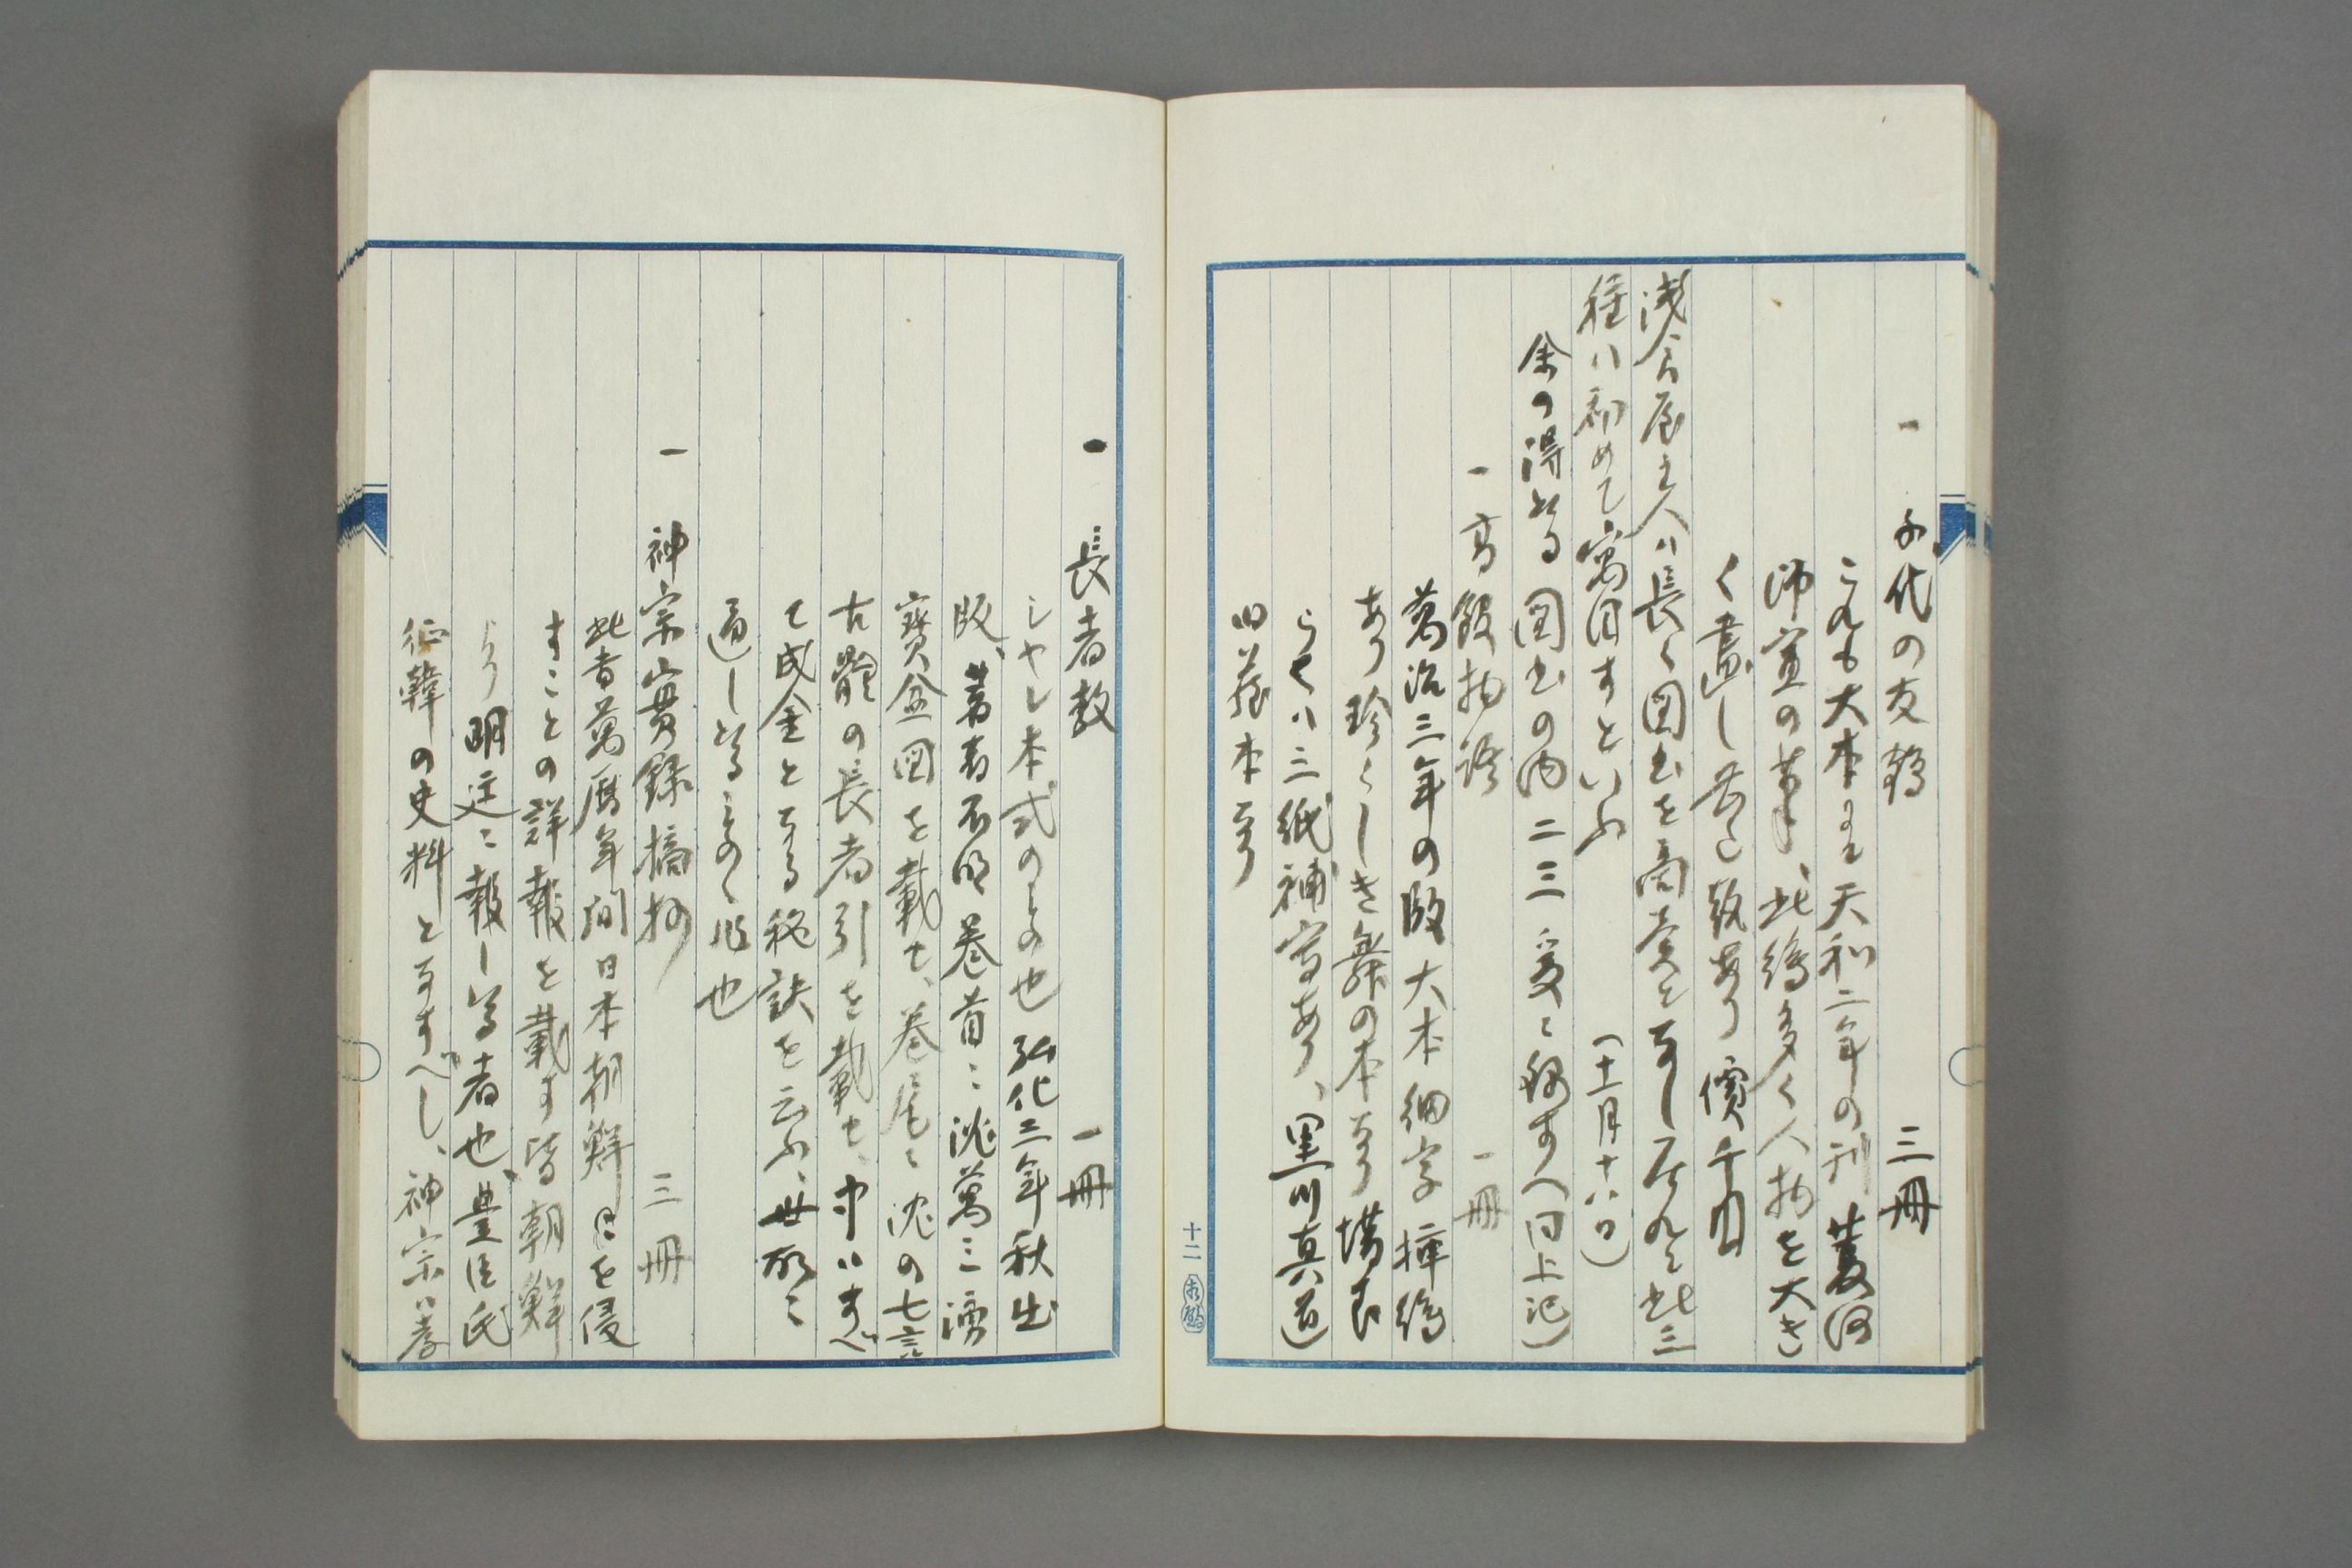 一 千代の友鶴 三冊
これも大本にて天和二年の刊 菱河
師宣の筆、此絵多く人物を大き
く畫し 甚だ 致あり 價千円
浅倉屋主人ハ長く図書を商売となし居れど此三
種ハ初めて寓目すといふ (十一月十八日)
余の得たる図書の内二三 爰に録す(同上記)
一 高舘物語 一冊
萬治三年の版 大本 細字 挿絵
あり 珍らしき舞の本なり 墻表
らくハ三紙補寫あり、 (黒川真道)
旧蔵本なり
十二
一 長者教 一冊
シヤレ本式のもの也 弘化三年秋出
版、著者不明 巻首ニ 沈萬三 湧
寶盆図を載せ、巻尾ニ 沈の七言
古體の長者引を載せ、中ハすべ
て成金となる秘訣を云ふ、世態ニ
通したるものゝ作也
一 神宗實録摘抄 三冊
此書萬暦年間日本朝鮮を侵
すことの詳報を載す 皆 朝鮮
より明廷ニ報したる者也、豊臣氏
征韓の史料となすべし、神宗ハ孝